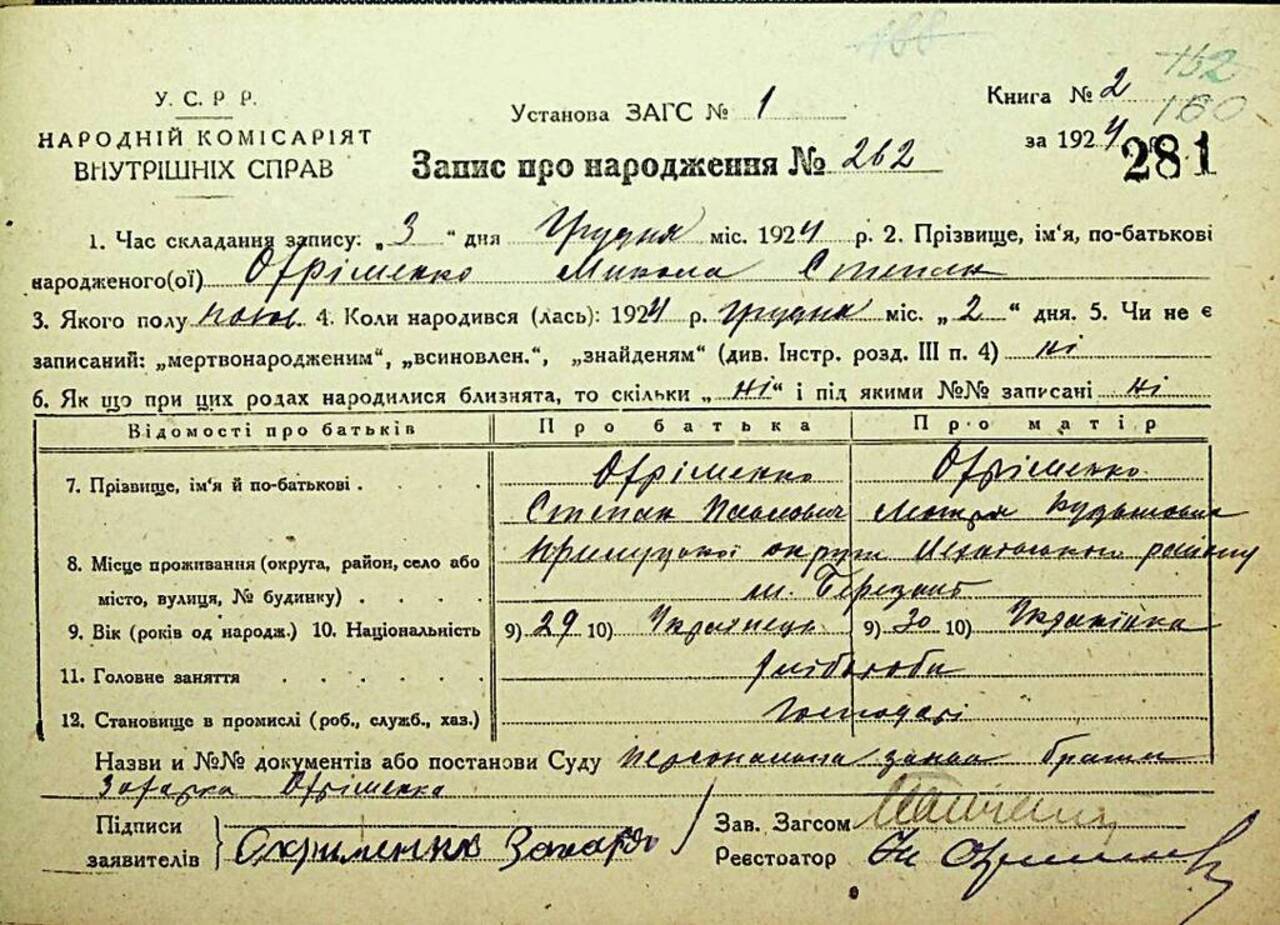 188
У. С. Р Р.
НАРОДНІЙ КОМІСАРІЯТ
ВНУТРІШНІХ СПРАВ
Установа ЗАГС № 1
Запис про народження № 262
Книга № 2
152
160
за 1924 р.
281
1. Час складання запису: „3“ дня Грудня міс. 1924 р. 2. Прізвище, ім'я, по-батькові
народженого(ої) Охріменко Микола Степан
3. Якого полу 4. Коли народився (лась): 1924 р. грудня міс. „2“ дня. 5. Чи не є
записаний: „мертвонародженим“, „всиновлен.“, „знайденям“ (див. Інстр. розд. III п. 4) ні
6. Як що при цих родах народилися близнята, то скільки „ні“ і під якими №№ записані ні
Відомості про батьків Про батька Про матір
7. Прізвище, ім'я й по-батькові Охріменко Охріменко
Степан Павлович Мотря
8. Місце проживання (округа, район, село або Прилуцької округи району
місто, вулиця, № будинку) м. Березань
9. Вік (років од народж.) 10. Національність 9) 29 10) Українець 9) 30 10) Українка
11. Головне заняття Хлібороби
12. Становище в промислі (роб., служб., хаз.) Господарі
Назви и №№ документів або постанови Суду персональна заява брата
Захарка Охріменка
Підписи заявителів Охрименко Захарко
Зав. Загсом
Реєстоатор